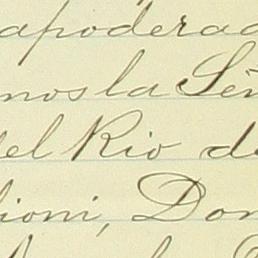 apoderad
mos la Señ
del Rio de
lioni, Don